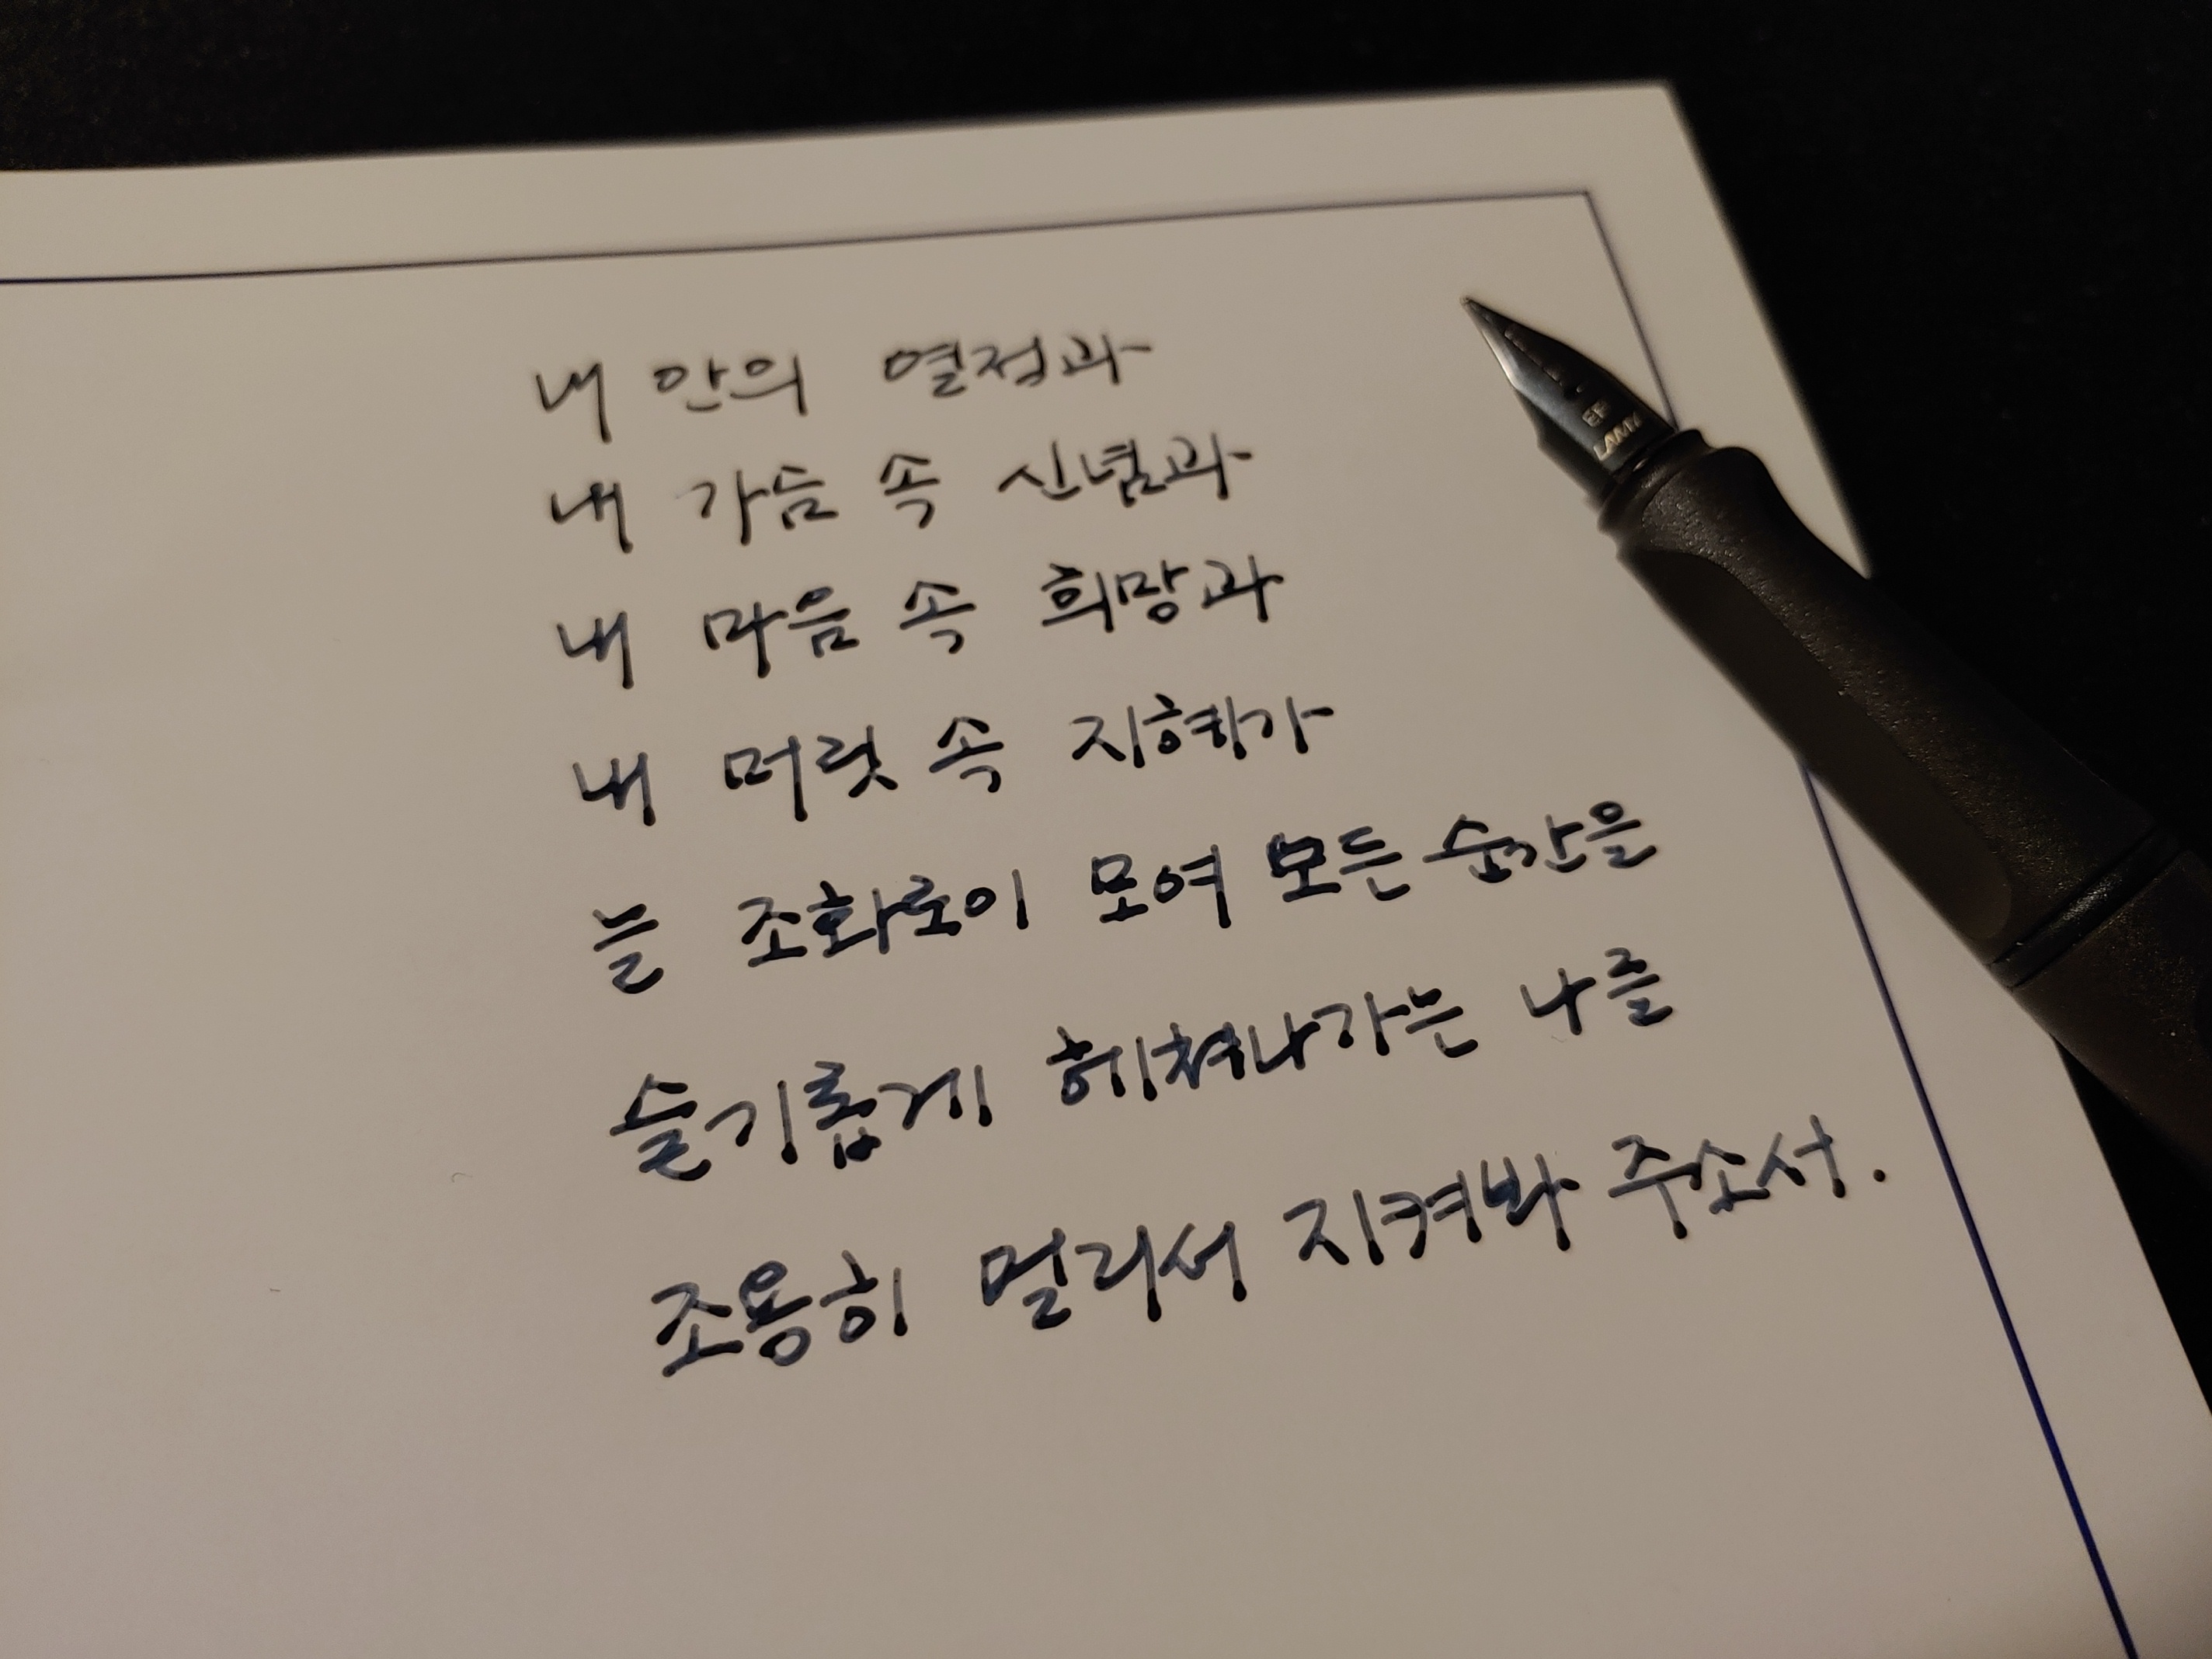 내 안의 열정과
내 가슴 속 신념과
내 마음 속 희망과
내 머릿 속 지혜가
늘 조화로이 모여 모든 순간을
슬기롭게 헤쳐나가는 나를
조용히 멀리서 지켜봐 주소서.
EF
LAMY